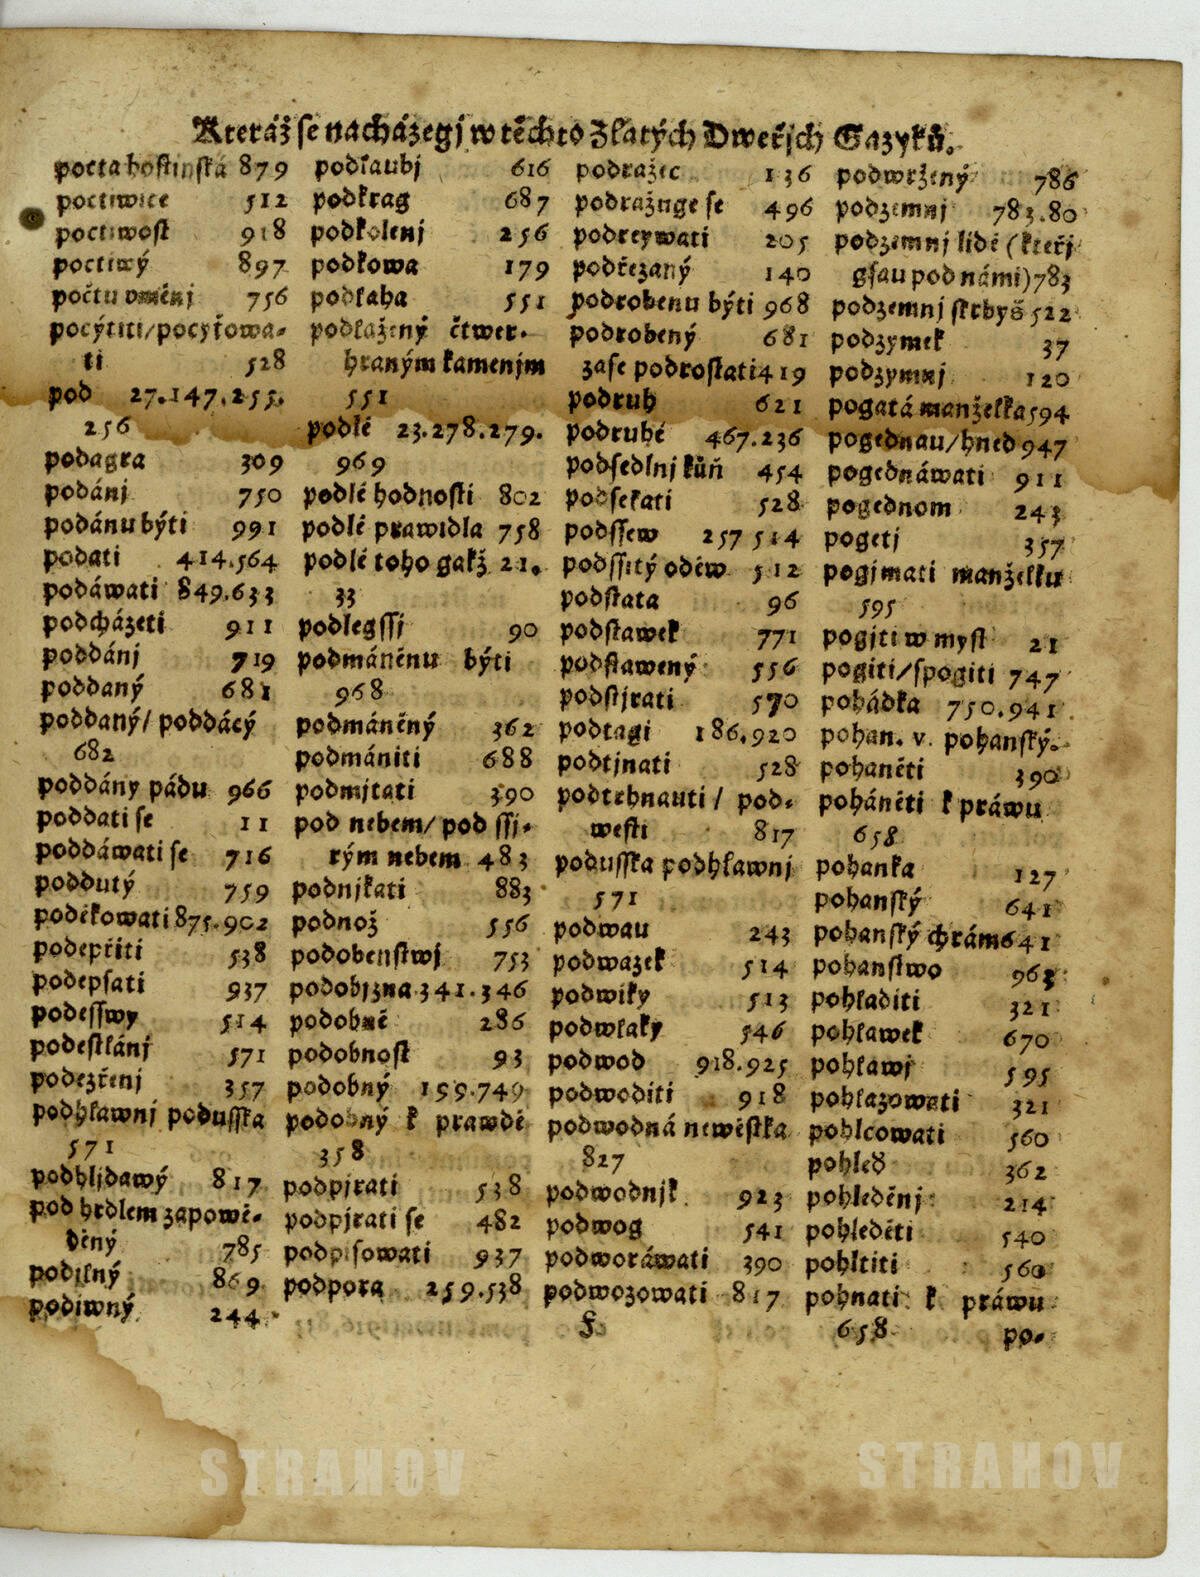 Kteráž se nacházegj w těchto Zlatých Dweřjch Gazyků.
pocta hostinská 879
poctiwice 512
poctiwost 918
poctiwý 897
počtu vměnj 756
pocýtiti/pocyťowa-
ti 528
pod 27.147.255.
256
podagra 309
podánj 750
podánu býti 991
podati 414.564
podáwati 849.633
podcházeti 911
poddánj 719
poddaný 681
poddaný/ poddácý
682
poddány pádu 966
poddati se 11
poddáwati se 716
poddutý 759
poděkowati 875.902
podepříti 538
podepsati 937
podesswy 514
podestlánj 571
podezřenj 357
podhlawnj podusska
571
podhljdawý 817
pod hrdlem zapowě-
děný 785
podjlný 869
podiwný 244
podkaubj 616
podkrag 687
podkolenj 256
podkowa 179
podlaha 551
podlažený čtwer-
hraným kamenjm
551
podlé 23.278.279.
969
podlé hodnosti 802
podlé prawidla 758
podlé toho gakž 21.
33
podlegssj 90
podmáněnu býti
968
podmáněný 362
podmániti 688
podmjtati 390
pod nebem/ pod ssj-
rým nebem 483
podnjkati 883
podnož 556
podobenstwj 753
podobizna 341.346
podobně 286
podobnost 93
podobný 159.749
podobný k prawdě
358
podpjrati 538
podpjrati se 482
podpisowati 937
podpora 259.538
podražec 136
podražuge se 496
podreywati 205
podřezaný 140
podrobenu býti 968
podrobený 681
zase podrostati 419
podruh 621
podruhé 467.236
podsedlnj kůň 454
podsekati 528
podssew 257 514
podssitý oděw 512
podstata 96
podstawek 771
podstawený 556
podstjrati 570
podtagi 186.920
podtjnati 528
podtrhnauti / pod-
westi 817
podusska podhlawnj
571
podwau 243
podwazek 514
podwiky 513
podwlaky 546
podwod 918.925
podwoditi 918
podwodná newěstka
827
podwodnjk 923
podwog 541
podworáwati 390
podwozowati 817
podwržený 786
podzemnj 783.80
podzemnj lidé (kteřj
gsau pod námi) 783
podzemnj skrbyš 522
podzymek 37
podzymnj 120
pogatá manželka 594
pogednau/hned 947
pogednáwati 911
pogednom 243
pogetj 357
pogjmati manželku
595
pogjti w mysl 21
pogiti/spogiti 747
pohádka 750.941
pohan. v. pohanský.
pohaněti 390
poháněti k práwu
658
pohanka 127
pohanský 641
pohanský chrám 641
pohanstwo 963
pohladiti 321
pohlawek 670
pohlawj 595
pohlazowati 321
pohlcowati 560
pohled 362
pohleděnj 214
pohleděti 540
pohltiti 560
pohnati k práwu
658
f
po-
STRAHOV
STRAHOV